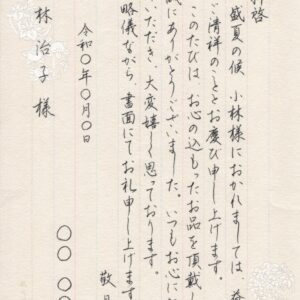 拝啓
盛夏の候 小林様におかれましては 益
ご清祥のこととお慶び申し上げます。
このたびは、お心の込もったお品を頂戴し
誠にありがとうございました。いつもお心に
いただき、大変嬉しく思っております。
略儀ながら 書面にてお礼申し上げます
敬具
令和〇年〇月〇日
〇〇 〇
林治子様